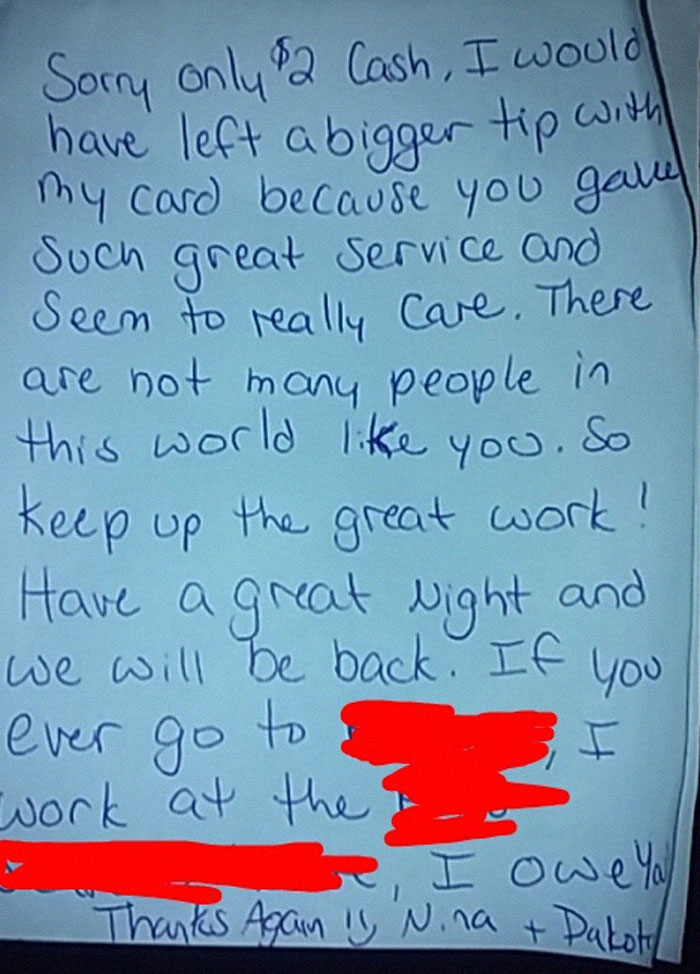 Sorry only $2 Cash, I would
have left a bigger tip with
my card because you gave
Such great service and
Seem to really Care. There
are not many people in
this world like you. So
keep up the great work!
Have a great Night and
we will be back. If you
ever go to , I
work at the
, I owe Ya
Thanks Again !! Nina + Dakota